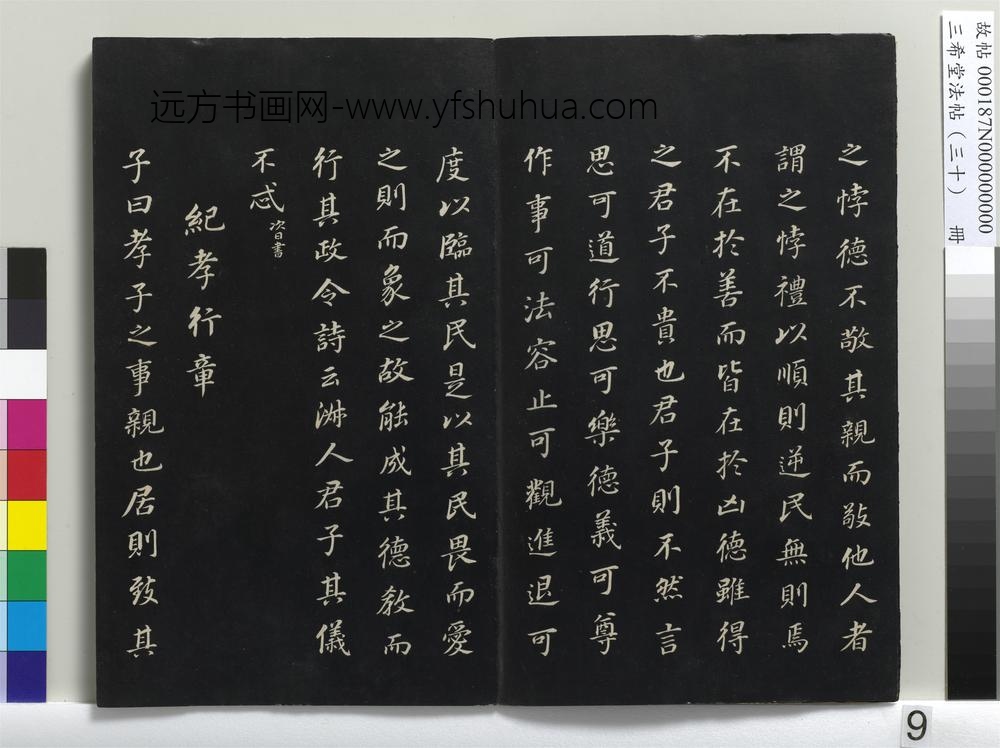 之悖德不敬其親而敬他人者
謂之悖禮以順則逆民無則焉
不在於善而皆在於凶德雖得
之君子不貴也君子則不然言
思可道行思可樂德義可尊
作事可法容止可觀進退可
度以臨其民是以其民畏而愛
之則而象之故能成其德教而
行其政令詩云淑人君子其儀
不忒
紀孝行章
子曰孝子之事親也居則致其
远方书画网-www.yfshuhua.com
故帖 000187N000000000
三希堂法帖(三十) 冊
9